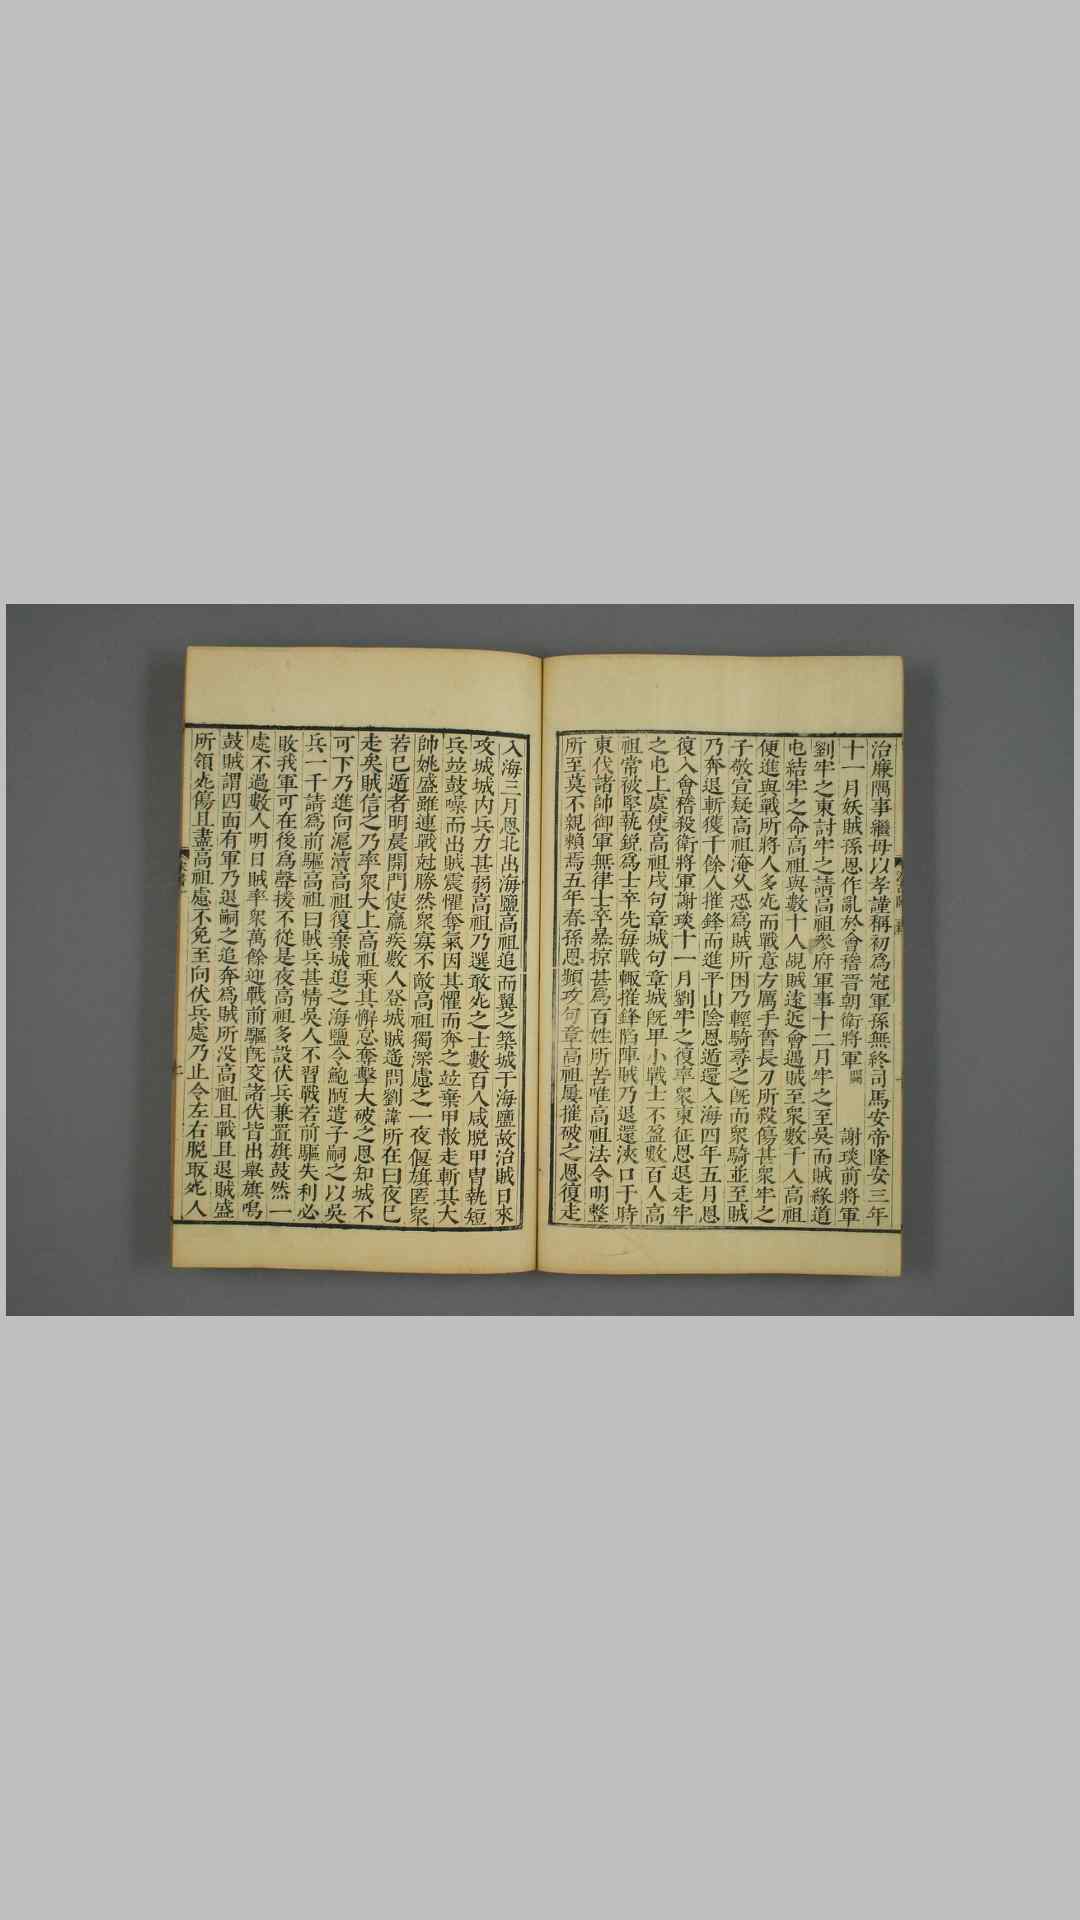 治廉隅事繼母以孝謹稱初爲冠軍孫無終司馬安帝隆安三年
十一月妖賊孫恩作亂於會稽晉朝衛將軍闕謝琰前將軍
劉牢之東討牢之請高祖參府軍事十二月牢之至吳而賊緣道
屯結牢之命高祖與數十人覘賊遠近會遇賊至衆數千人高祖
便進與戰所將人多死而戰意方厲手奮長刀所殺傷甚衆牢之
子敬宣疑高祖淹久恐爲賊所困乃輕騎尋之旣而衆騎並至賊
乃奔退斬獲千餘人推鋒而進平山陰恩遁還入海四年五月恩
復入會稽殺衛將軍謝琰十一月劉牢之復率衆東征恩退走牢
之屯上虞使高祖戍句章城句章城旣卑小戰士不盈數百人高
祖常被堅執銳爲士卒先每戰輒摧鋒陷陣賊乃退還浹口于時
東伐諸帥御軍無律士卒暴掠甚爲百姓所苦唯高祖法令明整
所至莫不親賴焉五年春孫恩頻攻句章高祖屢摧破之恩復走
入海三月恩北出海鹽高祖追而翼之築城于海鹽故治賊日來
攻城城内兵力甚弱高祖乃選敢死之士數百人咸脱甲冑執短
兵並鼓噪而出賊震懼奪氣因其懼而奔之並棄甲散走斬其大
帥姚盛雖連戰尅勝然衆寡不敵高祖獨深慮之一夜偃旗匿衆
若已遁者明晨開門使羸疾數人登城賊遙問劉諱所在曰夜已
走矣賊信之乃率衆大上高祖乘其懈怠奮擊大破之恩知城不
可下乃進向滬瀆高祖復棄城追之海鹽令鮑陋遣子嗣之以吳
兵一千請爲前驅高祖曰賊兵甚精吳人不習戰若前驅失利必
敗我軍可在後爲聲援不從是夜高祖多設伏兵兼置旗鼓然一
處不過數人明日賊率衆萬餘迎戰前驅旣交諸伏皆出舉旗鳴
鼓賊謂四面有軍乃退嗣之追奔爲賊所没高祖且戰且退賊盛
所領死傷且盡高祖慮不免至向伏兵處乃止令左右脱取死人